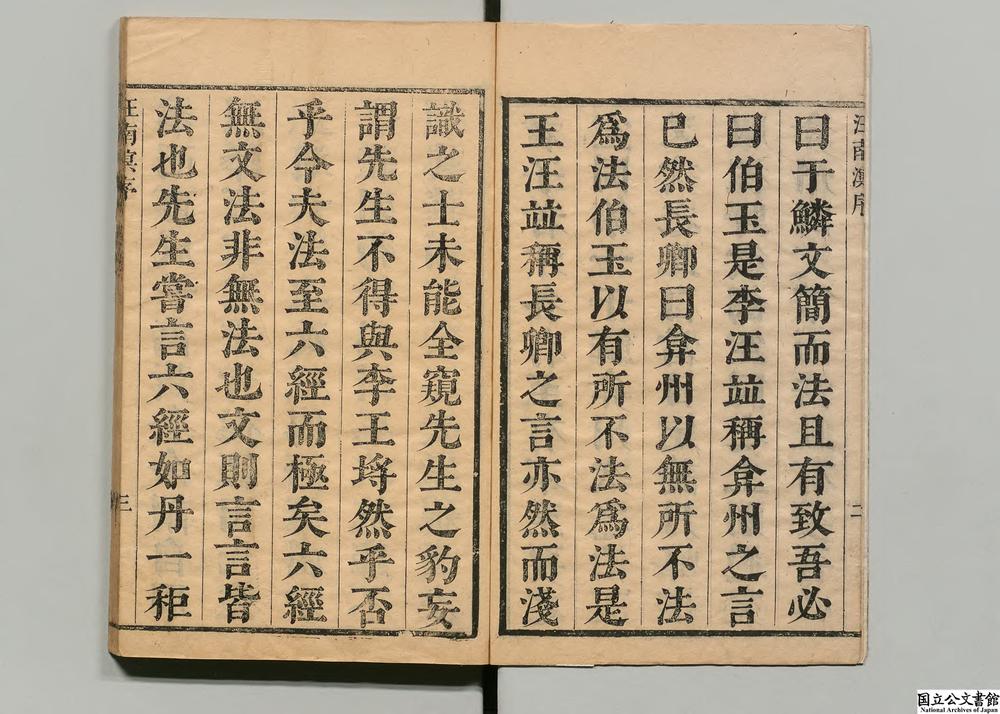 汪南溟序
二
曰于鱗文簡而法且有致吾必
曰伯玉是李汪並稱弇州之言
已然長卿曰弇州以無所不法
爲法伯玉以有所不法爲法是
王汪並稱長卿之言亦然而淺
識之士未能全窺先生之豹妄
謂先生不得與李王埒然乎否
乎今夫法至六經而極矣六經
無文法非無法也文則言言皆
法也先生嘗言六經如丹一秬
汪南溟序
三
国立公文書館
National Archives of Japan